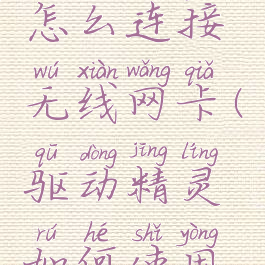 怎么连接
wú xiàn wǎng qiǎ
无线网卡(
qū dòng jīng líng
驱动精灵
rú hé shǐ yòng
如何使用